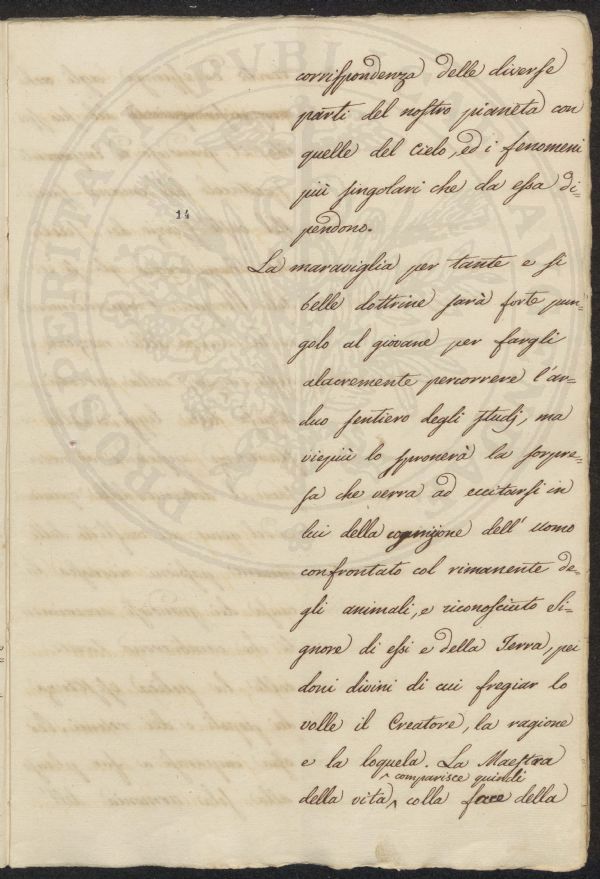 corrispondenza delle diverse
parti del nostro pianeta con
quelle del Cielo, ed i fenomeni
più singolari che da essa di-
14
pendono.
La maraviglia per tante e sì
belle dottrine sarà forte pun-
golo al giovane per fargli
alacremente percorrere l'ar-
duo sentiero degli studj, ma
viepiù lo spronerà la sorpre-
sa che verra ad eccitarsi in
lui della cognizione dell' uomo
confrontato col rimanente de-
gli animali, e riconosciuto Si-
gnore di essi e della Terra, pei
doni divini di cui fregiar lo
volle il Creatore, la ragione
e la loquela. La Maestra
^ comparisce quindi
della vita ^ colla face della